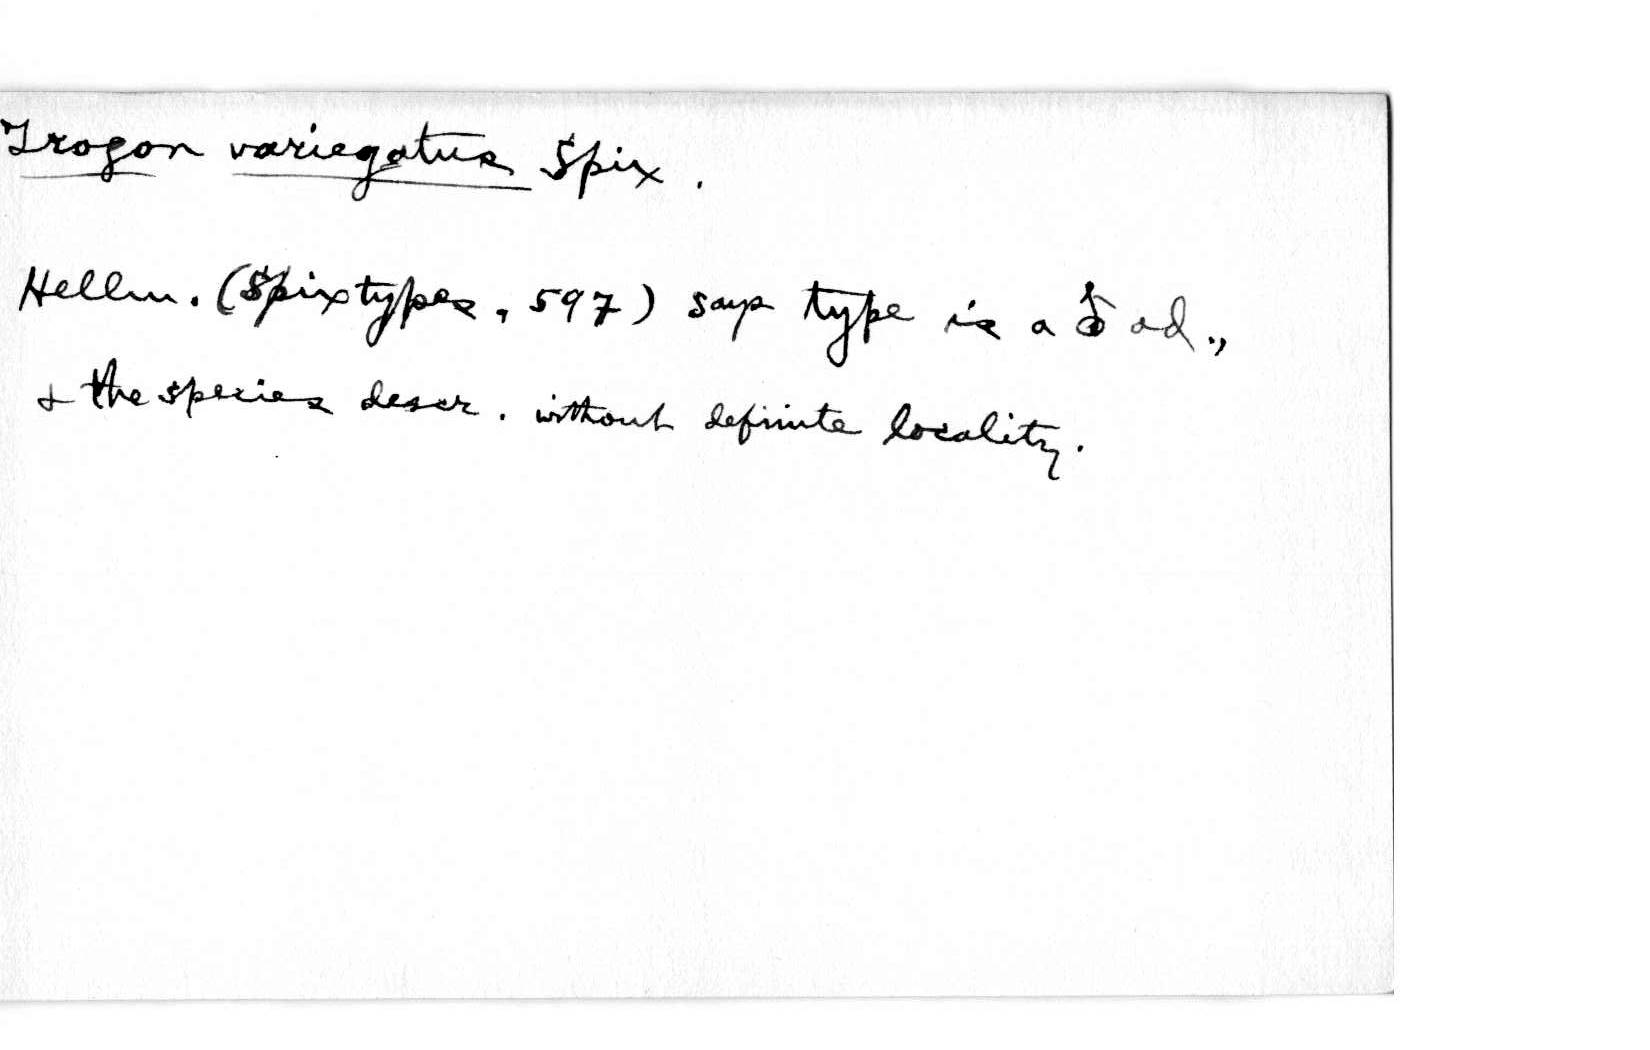 Trogon variegatus Spix.
Hellm. (Spix types, 597) says type is a ♂ ad.,
& the species descr. without definite locality.